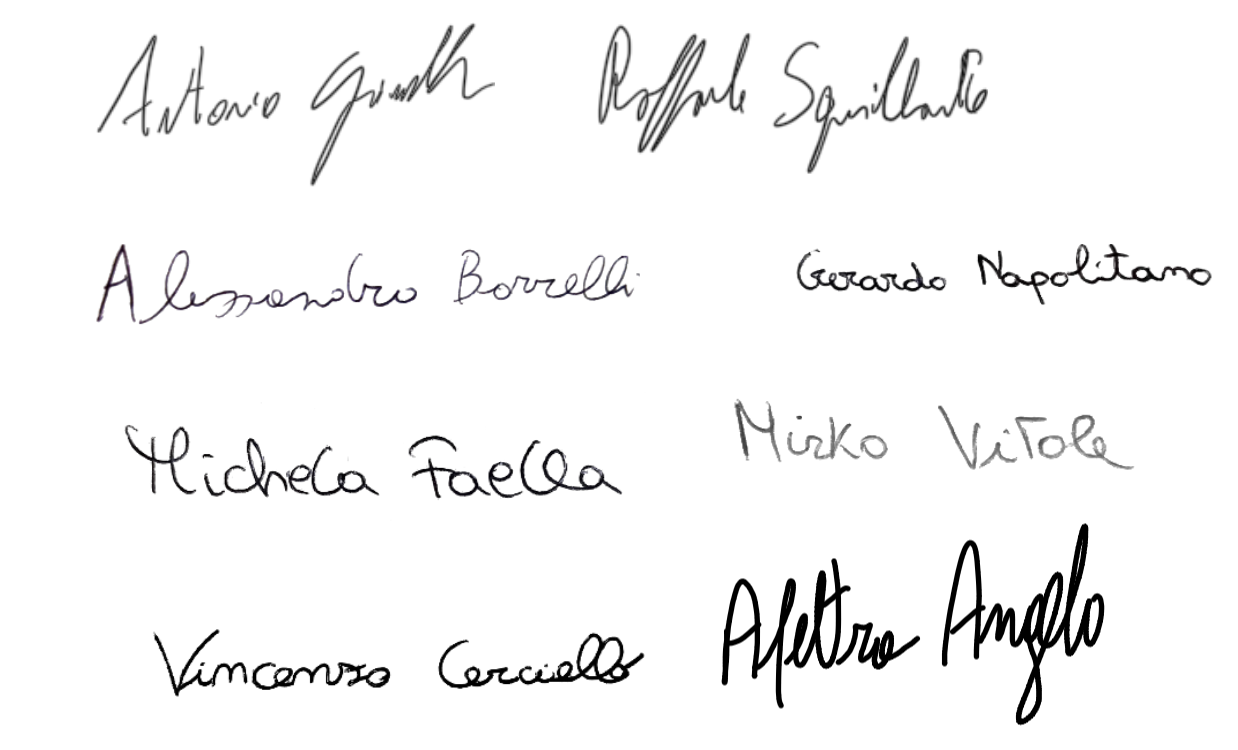 Antonio Raffaele Squillante
Alessandro Borrelli Gerardo Napolitano
Michela Faella Mirko Vitole
Vincenzo Cerciello Afeltra Angelo